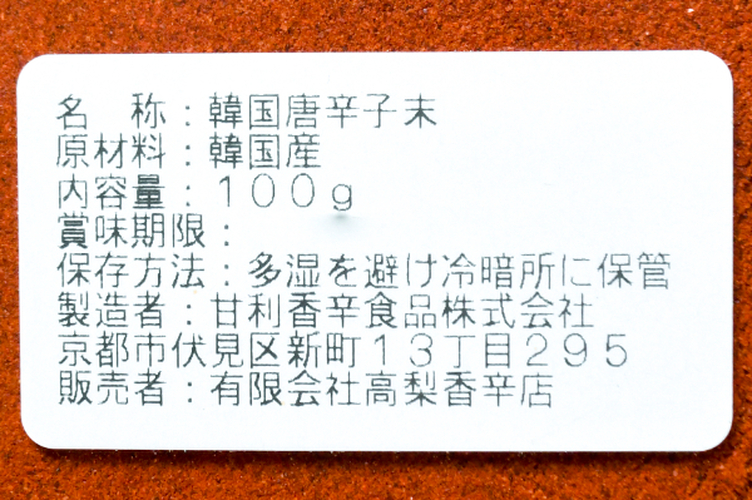 名　称：韓国唐辛子末
原材料：韓国産
内容量：１００ｇ
賞味期限：
保存方法：多湿を避け冷暗所に保管
製造者：甘利香辛食品株式会社
京都市伏見区新町１３丁目２９５
販売者：有限会社高梨香辛店